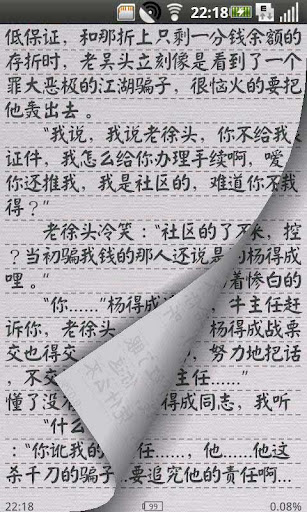 22:18
低保证，和那折上只剩一分钱余额的
存折时，老吴头立刻像是看到了一个
罪大恶极的江湖骗子，很恼火的要把
他轰出去。
“我说，我说老徐头，你不给我
证件，我怎么给你办理手续啊，嗳
你还推我，我是社区的，难道你不
得？”
老徐头冷笑：“社区的了不
？当初骗我钱的那人还说是
哩。” 着惨白的
“你……”杨得成 ，牛主任赶
诉你，老徐头 杨得成战栗
交也得交 ，努力地把话
，不交 主任……”
懂了没 得成同志，我听
“什么
：“你讹我的 任……，他……他这
杀千刀的骗子…要追究他的责任啊…
22:18
99
0.08%